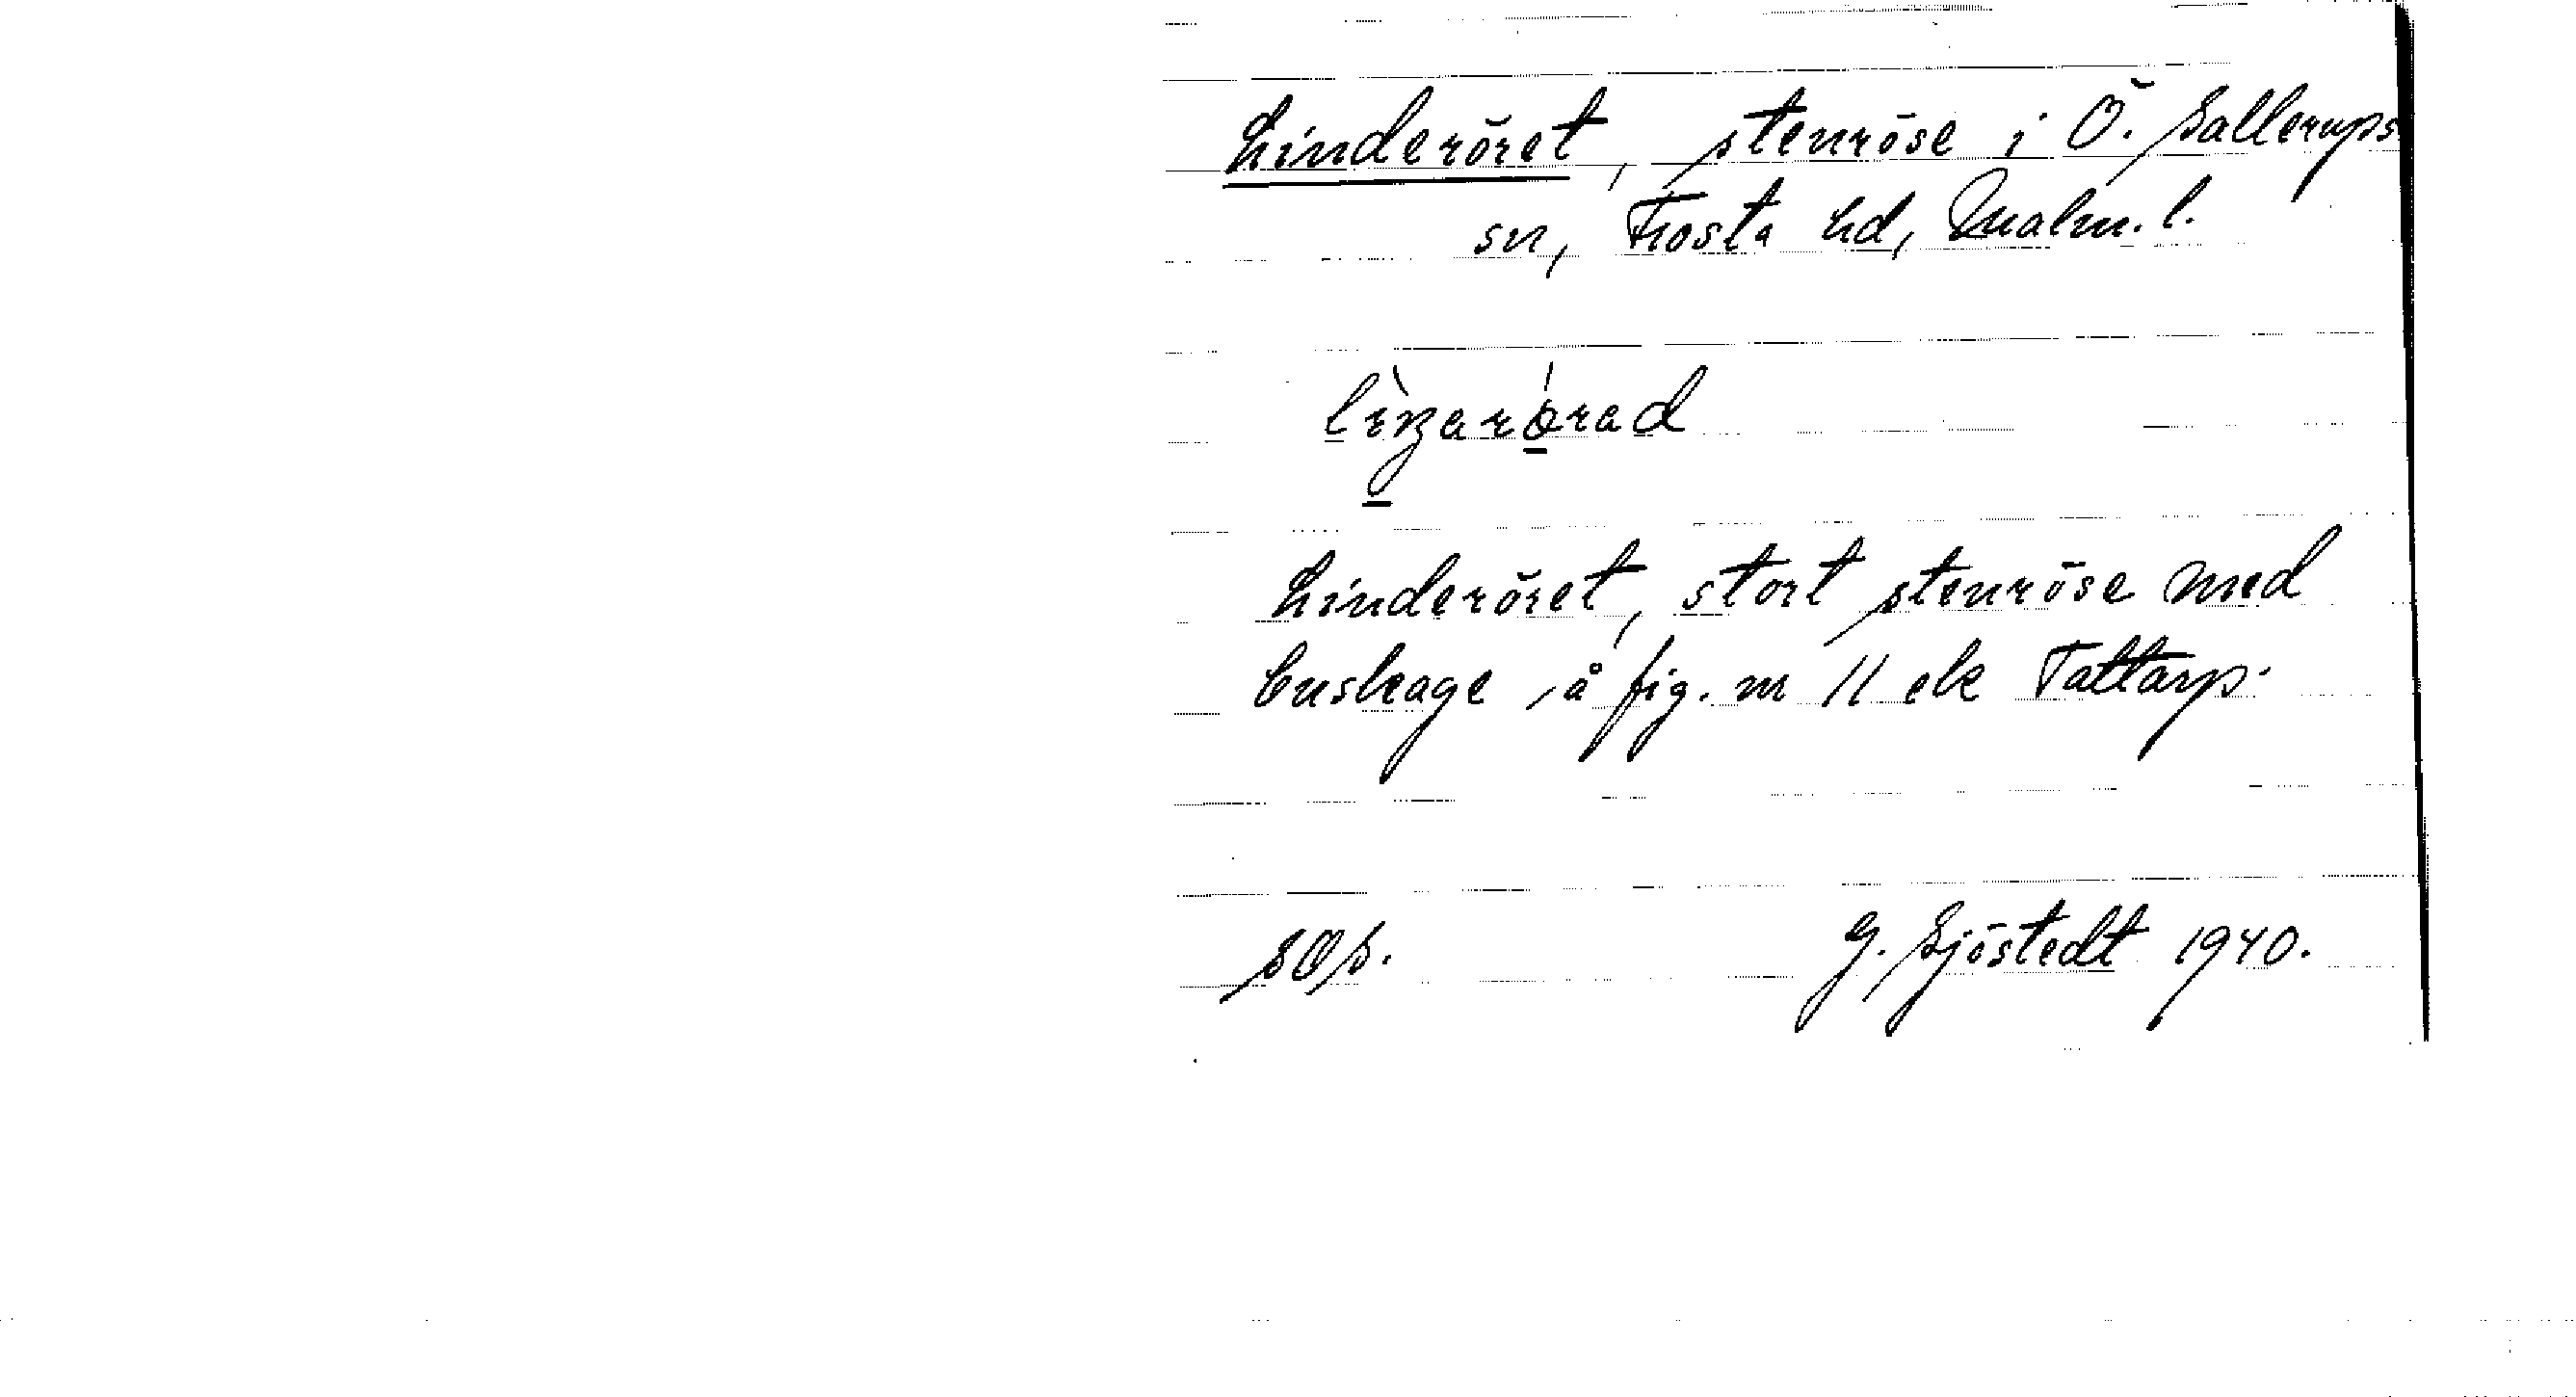 Linderöret, stenröse i Ö. Sallerups
sn, Frosta hd, Malm. l.
Linderöret, stort stenröse med
buskage, å fig. nr 11 ek Tattarp.
G. Sjöstedt 1940.